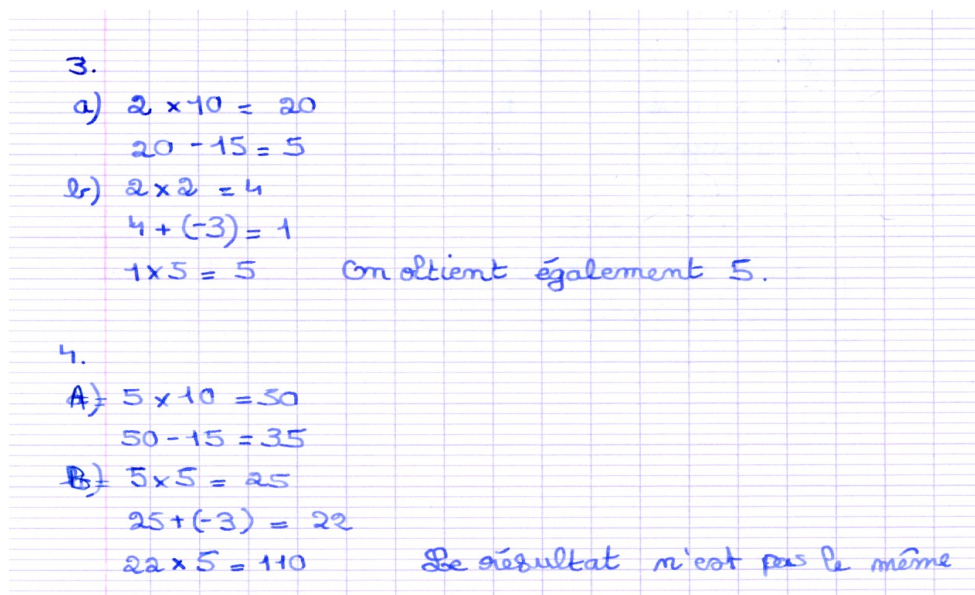 3.
a) 2 × 10 = 20
20 - 15 = 5
b) 2 × 2 = 4
4 + (-3) = 1
1 × 5 = 5 On obtient également 5.
4.
A) 5 × 10 = 50
50 - 15 = 35
B) 5 × 5 = 25
25 + (-3) = 22
22 × 5 = 110 Le résultat n'est pas le même